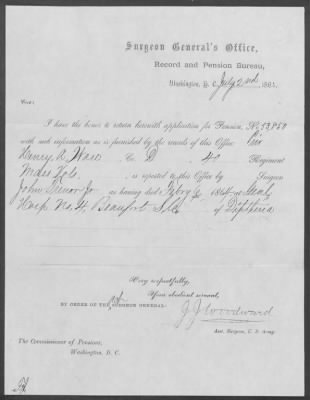 Surgeon General's Office,
Record and Pension Bureau,
Washington, D. C. July 2nd 1864.
SIR:
I have the honor to return herewith application for Pension, No. 53,950
with such information as is furnished by the records of this Office. Viz
Henry A. Ware Co D 40 Regiment
Mass Vols. , is reported to this Office by Surgeon
John Trenor Jr as having died 1864 at Genl
Hosp No. 4 Beaufort S.C. of Diptheria
Very respectfully,
Your obedient servant,
BY ORDER OF THE SURGEON GENERAL:
J J Woodward
Ass. Surgeon, U. S. Army.
The Commissioner of Pensions,
Washington, D. C.